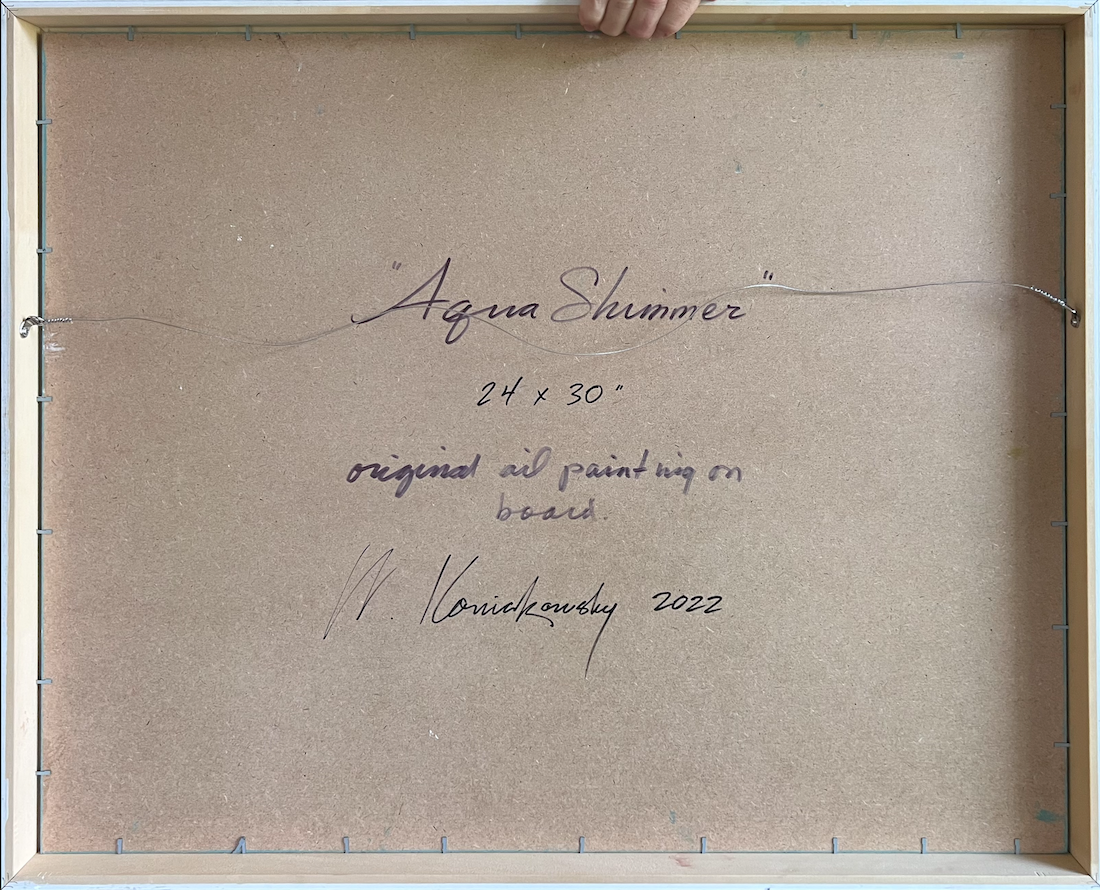 "Aqua Shimmer"
24 x 30"
original oil painting on
board.
W. Koniakowsky 2022